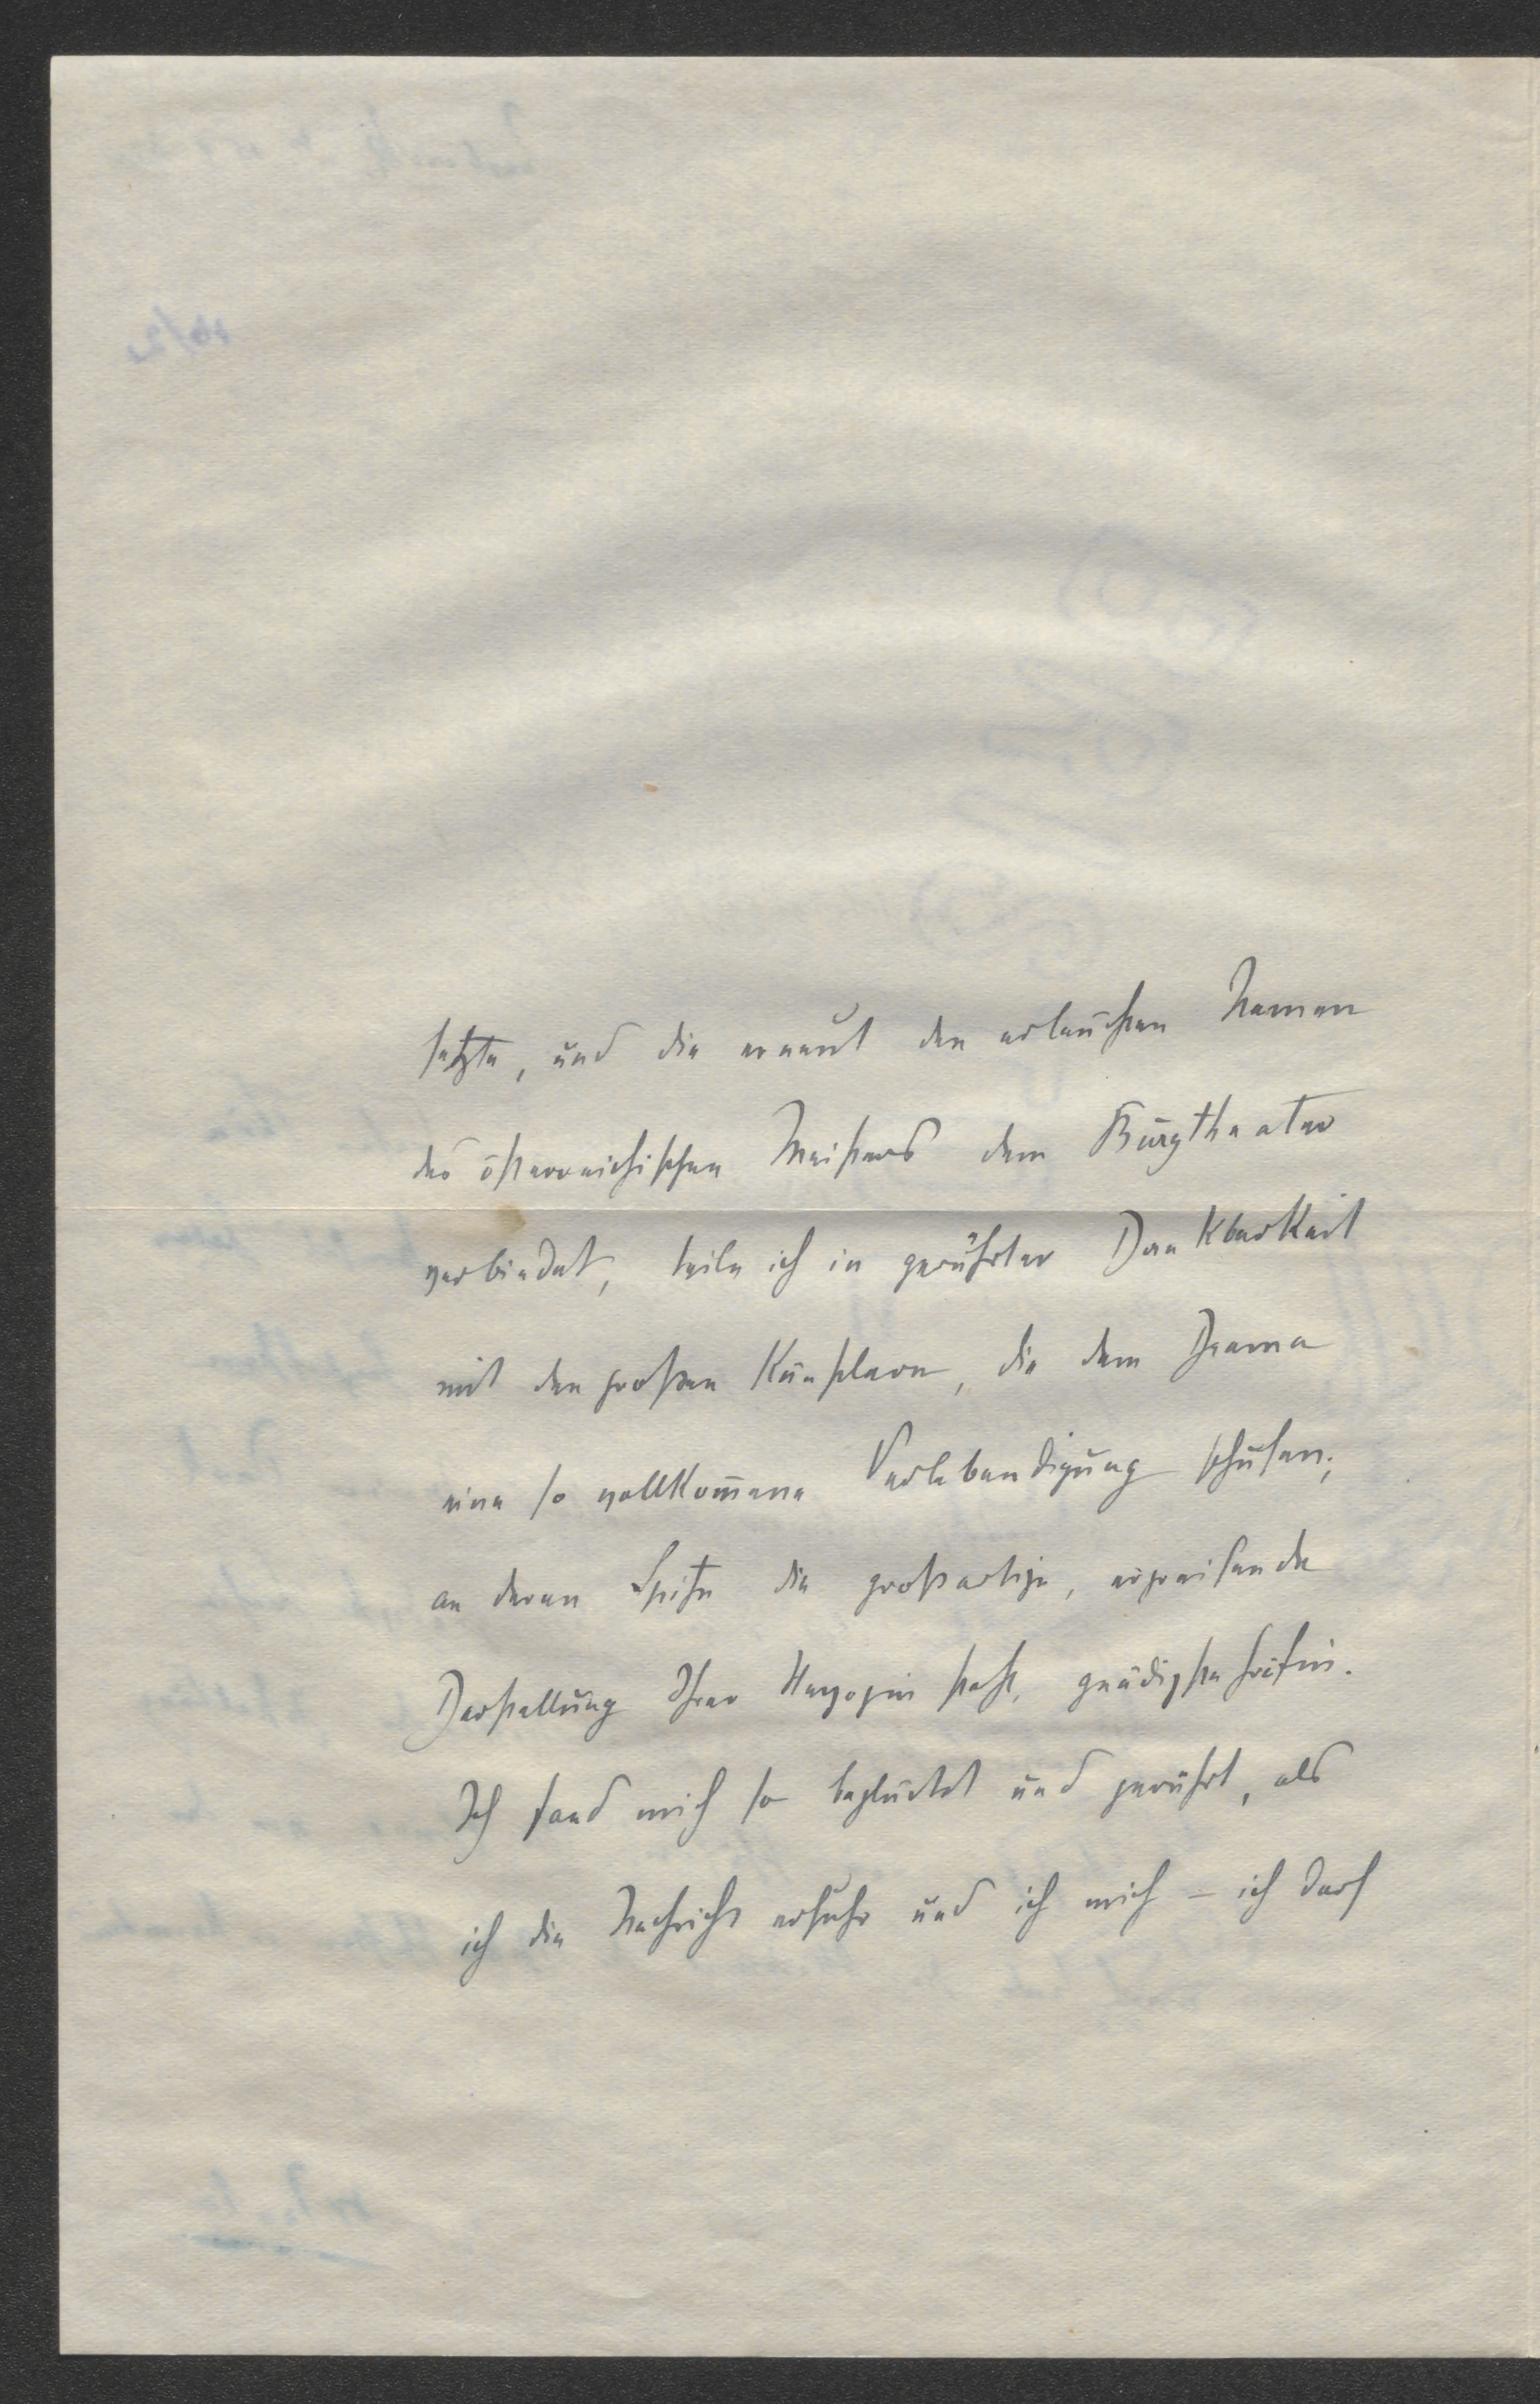 setzte, und die erneut den erlauchten Namen
des österreichischen Meisters dem Burgtheater
verbindet, teile ich in gerührter Dankbarkeit
mit den großen Künstlern, die dem Drama
eine so vollkom̅ene Verlebendigung schufen;
an deren Spitze die großartige, ergreifende
Darstellung Ihrer Herzogin steht, gnädigste Gräfin.
Ich fand mich so beglückt und gerührt, als
ich die Nachricht erfuhr und ich mich – ich darf